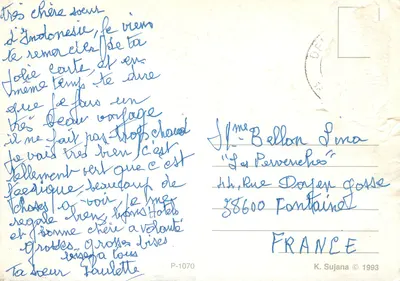 très chère sœur
d'Indonésie, je viens
te remercier de ta
jolie carte, et en
même temps te dire
que je fais un
très beau voyage
il ne fait pas trop chaud
je vais très bien c'est
tellement vert que c'est
féerique, beaucoup de
choses à voir, je me
régale bien, bons Hotels
et bonne chère a volonté
grosses grosses bises
a tous
Ta sœur Paulette
Mme Bellon Lina
"Les Pervenches"
44, Rue Doyen Gosse
38600 Fontaine
FRANCE
P-1070
K. Sujana © 1993